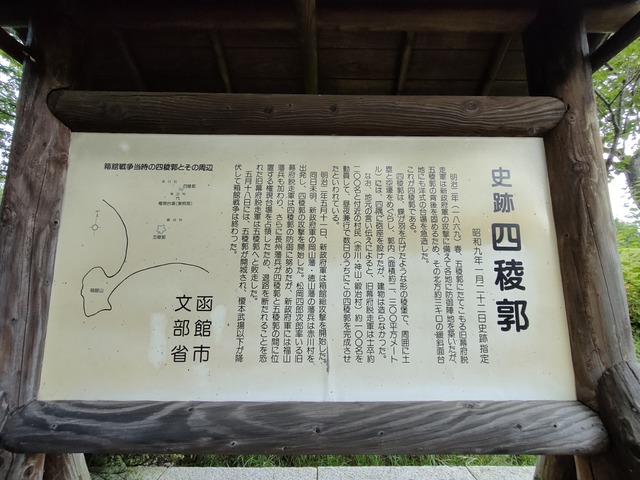 史跡 四稜郭
昭和九年一月二十二日史跡指定
明治二年(一八六九)春、五稜郭にたてこもる旧幕府脱
走軍は新政府軍の攻撃に備えて各地に防御陣地を築いたが、
五稜郭の背後を固めるため、その北方約三キロの緩斜面台
地にも洋式の台場を急造した。
これが四稜郭である。
四稜郭は、蝶が羽を広げたような形の稜堡で、周囲に土
塁と空壕をめぐらし、郭内(面積約二、三〇〇平方メート
ル)には、四隅に砲座を設けたが、建物は造らなかった。
なお、地元の言い伝えによると、旧幕府脱走軍は士卒約
二〇〇名と付近の村民(赤川・神山・鍛治村)約一〇〇名を
動員して、昼夜兼行で数日のうちにこの四稜郭を完成させ
たといわれている。
明治二年五月十一日、新政府軍は箱館総攻撃を開始した。
同日未明、新政府軍の岡山藩・徳山藩の藩兵は赤川村を
出発し、四稜郭の攻撃を開始した。松岡四郎次郎率いる旧
幕府脱走軍は四稜郭の防御に努めたが、新政府軍には福山
藩兵も加わり、さらに長州藩兵が四稜郭と五稜郭の間に位
置する権現台場を占領したため、退路を断たれることを恐
れた旧幕府脱走軍は五稜郭へと敗走した。
五月十八日には、五稜郭が開城され、榎本武揚以下が降
伏して箱館戦争は終わった。
函館市
文部省
箱館戦争当時の四稜郭とその周辺
四稜郭
権現台場(東照宮)
五稜郭
箱館山